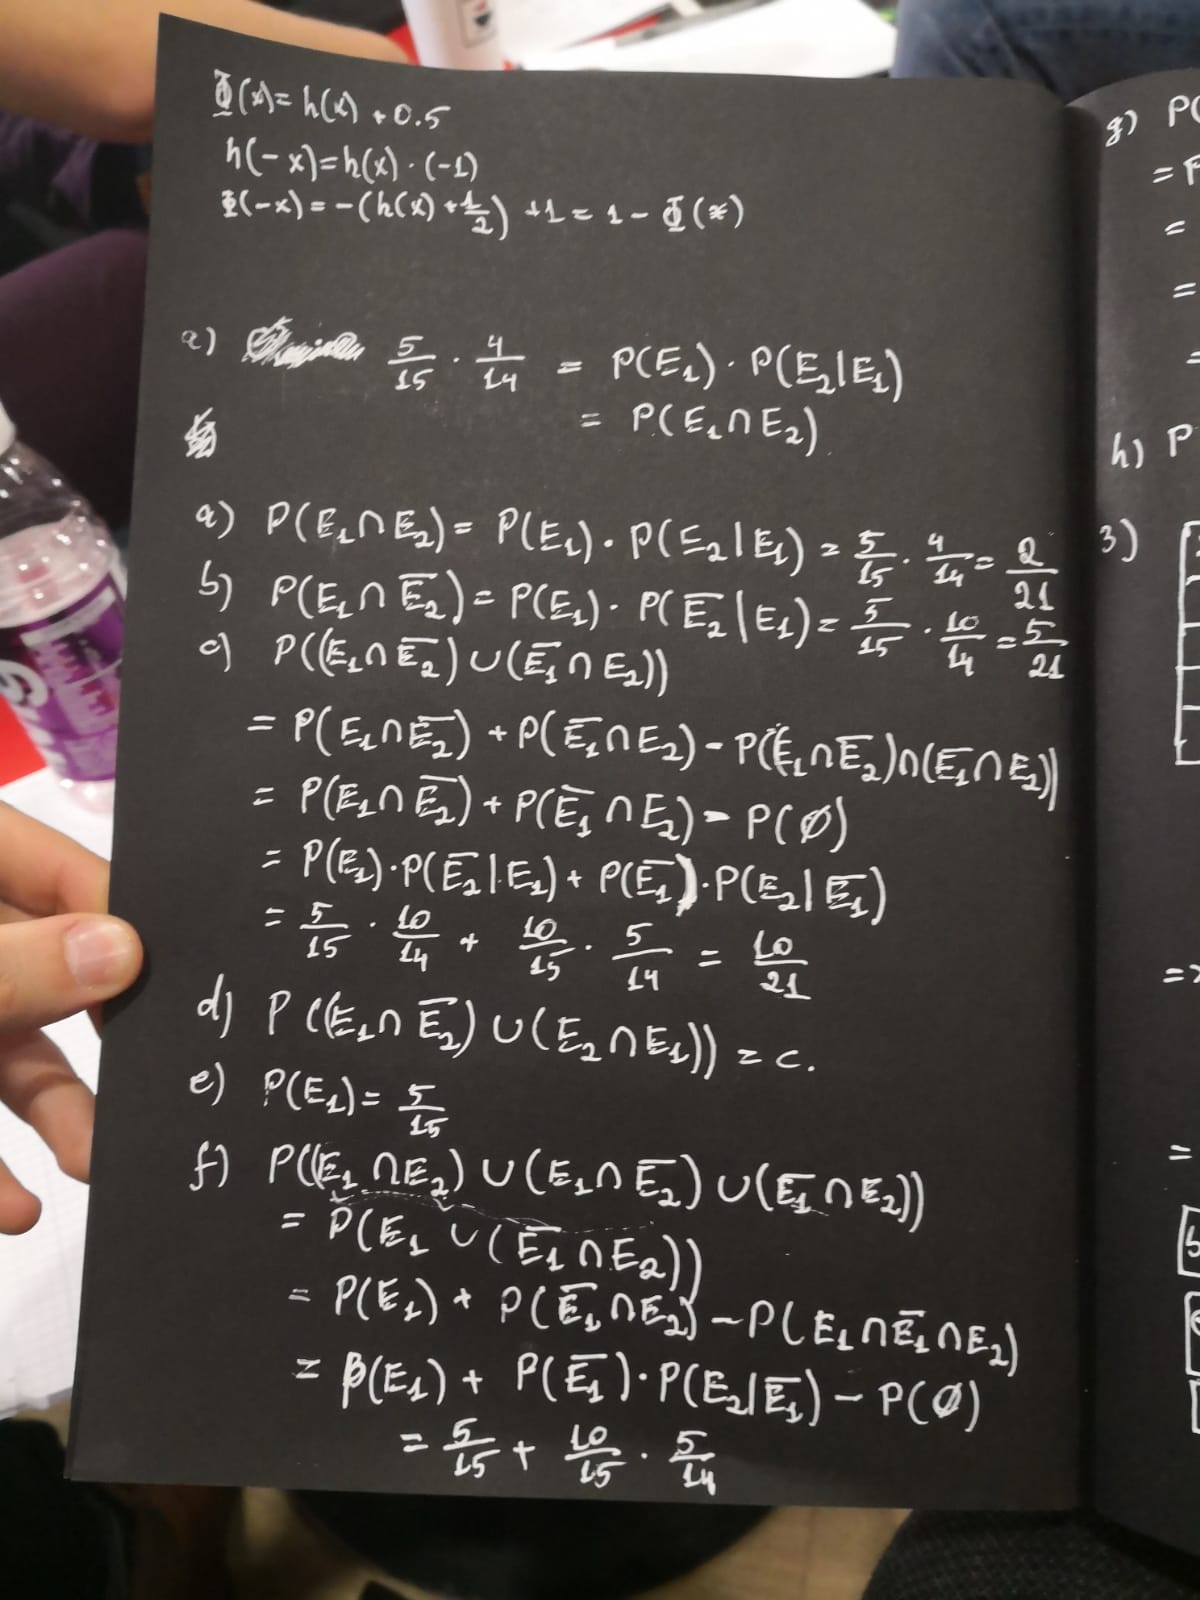 Φ(x) = h(x) + 0.5
h(-x) = h(x) · (-1)
Φ(-x) = -(h(x) + 1/2) + 1 = 1 - Φ(x)
a) 5/15 · 4/14 = P(E₁) · P(E₂|E₁)
= P(E₁∩E₂)
a) P(E₁∩E₂) = P(E₁) · P(E₂|E₁) = 5/15 · 4/14 = 2/21
b) P(E₁∩E̅₂) = P(E₁) · P(E̅₂|E₁) = 5/15 · 10/14 = 5/21
c) P((E₁∩E̅₂)∪(E̅₁∩E₂))
= P(E₁∩E̅₂) + P(E̅₁∩E₂) - P((E₁∩E̅₂)∩(E̅₁∩E₂))
= P(E₁∩E̅₂) + P(E̅₁∩E₂) - P(∅)
= P(E₁)·P(E̅₂|E₁) + P(E̅₁)·P(E₂|E̅₁)
= 5/15 · 10/14 + 10/15 · 5/14 = 10/21
d) P((E₁∩E̅₂)∪(E₂∩E₁)) = c.
e) P(E₁) = 5/15
f) P((E₁∩E₂)∪(E₁∩E̅₂)∪(E̅₁∩E₂))
= P(E₁∪(E̅₁∩E₂))
= P(E₁) + P(E̅₁∩E₂) - P(E₁∩E̅₁∩E₂)
= P(E₁) + P(E̅₁)·P(E₂|E̅₁) - P(∅)
= 5/15 + 10/15 · 5/14
g) P(
= P
=
=
=
h) P
3)
=